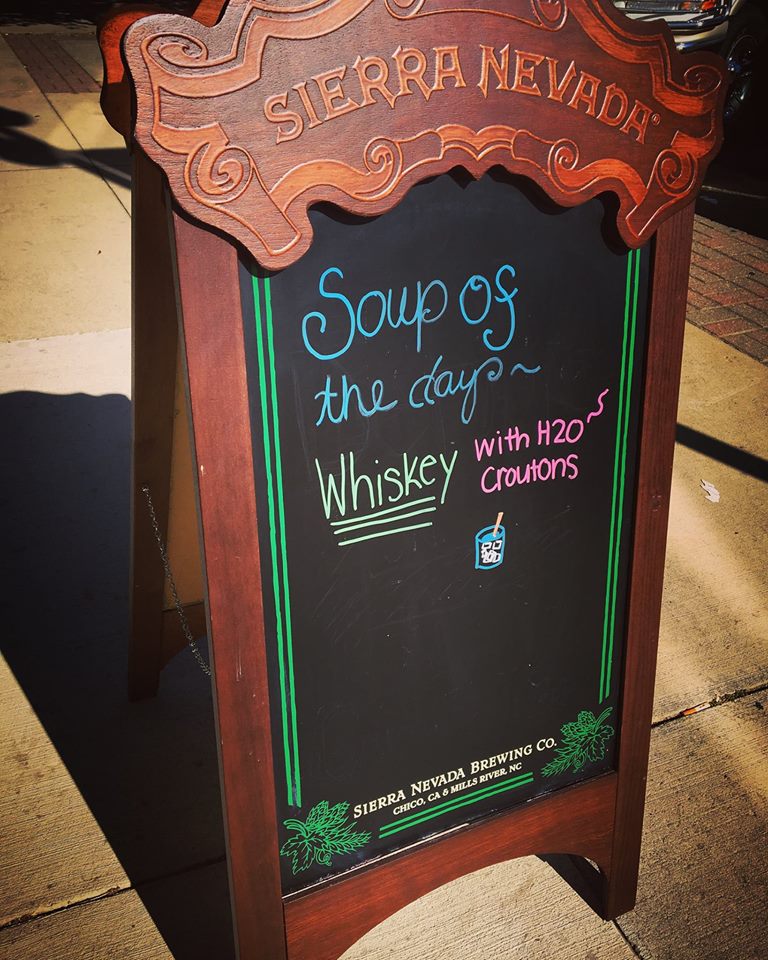 SIERRA NEVADA®
Soup of
the day~
Whiskey
with H2O~
Croutons
SIERRA NEVADA BREWING CO.
CHICO, CA & MILLS RIVER, NC